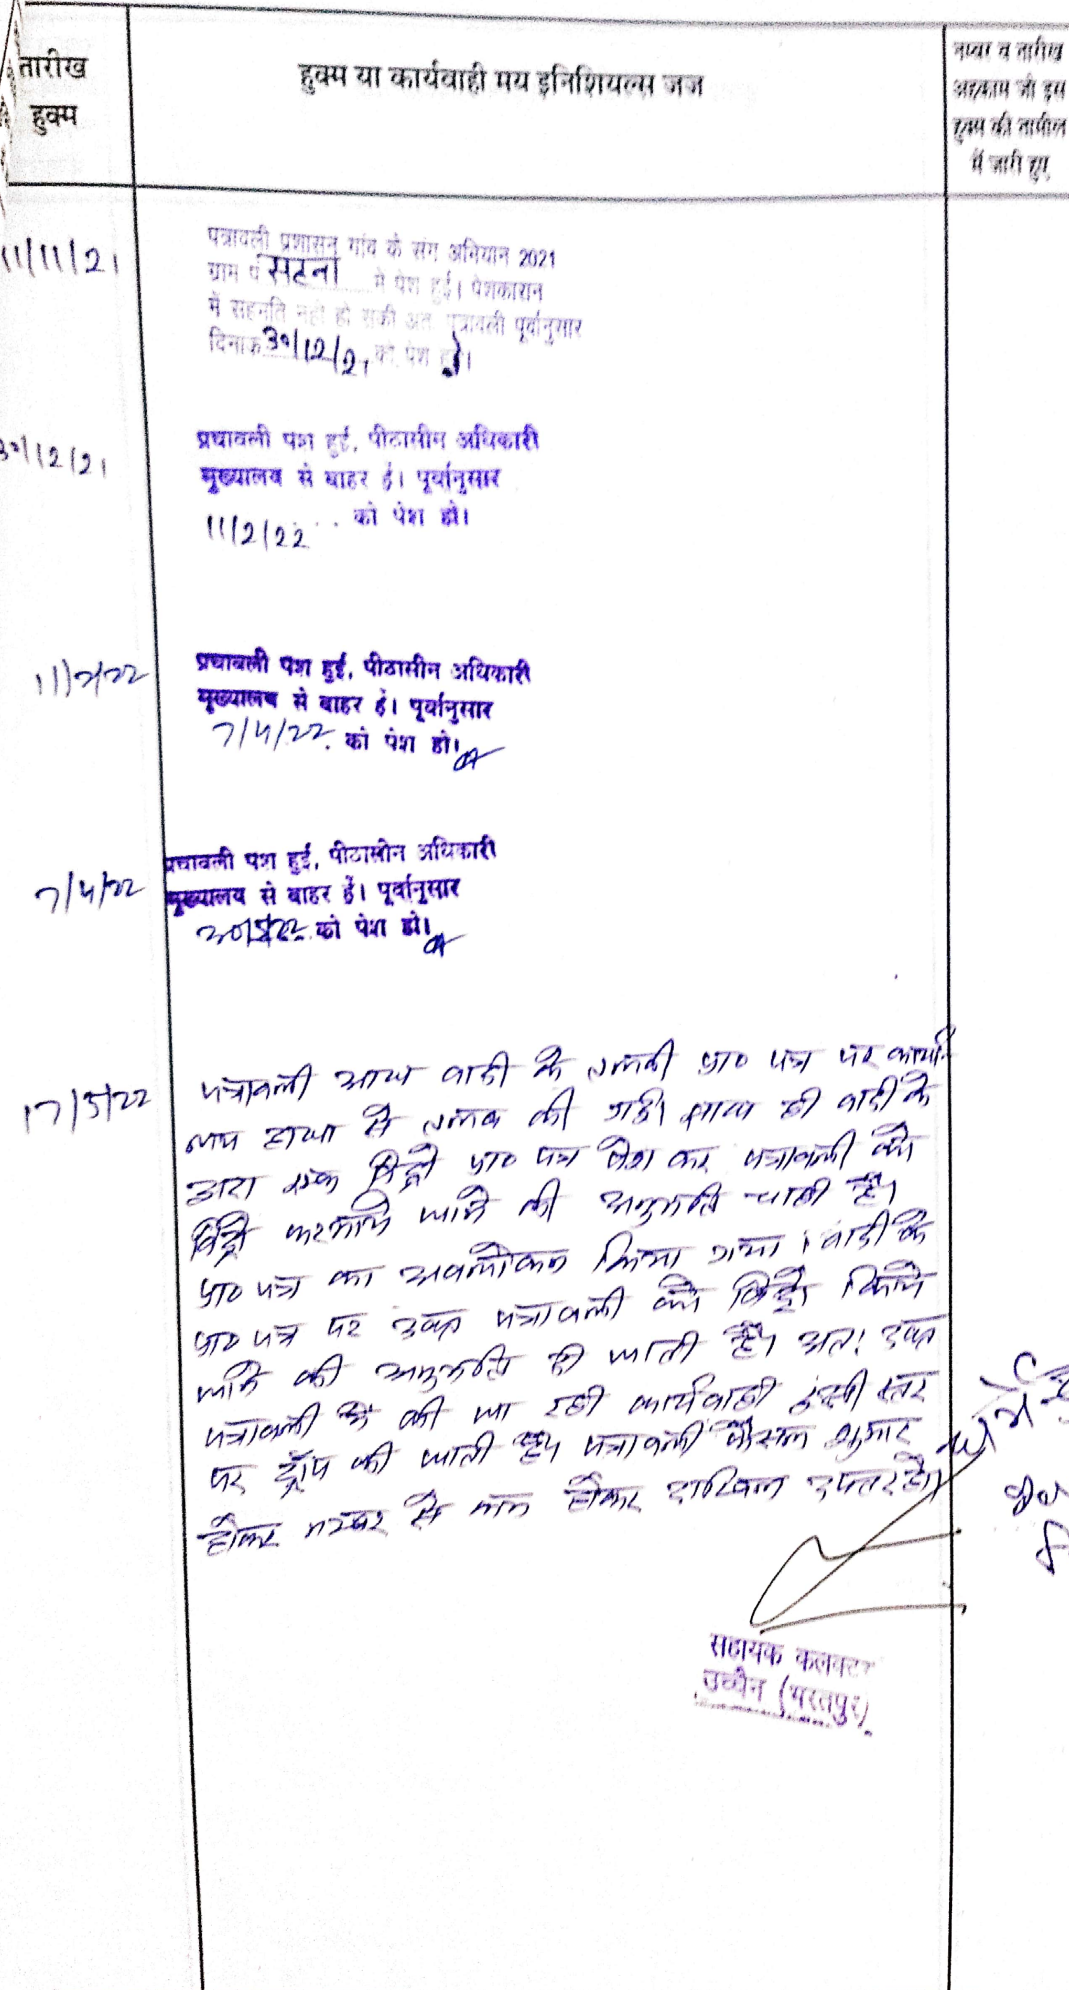 तारीख
हुक्म
हुक्म या कार्यवाही मय इनिशियल्स जज
नम्बर व तारीख
अहकाम जो इस
हुक्म की तामील
में जारी हुए
11/11/21
पत्रावली प्रशासन गांव के संग अभियान 2021
ग्राम पं सटना में पेश हुई। पेशकारान
में सहमति नही हो सकी अत पत्रावली पूर्वानुसार
दिनांक 30/12/21 को पेश हो।
30/12/21
पत्रावली पेश हुई, पीठासीन अधिकारी
मुख्यालय से बाहर है। पूर्वानुसार
11/2/22 को पेश हो।
11/2/22
पत्रावली पेश हुई, पीठासीन अधिकारी
मुख्यालय से बाहर है। पूर्वानुसार
7/4/22 को पेश हो।
7/4/22
पत्रावली पेश हुई, पीठासीन अधिकारी
मुख्यालय से बाहर हैं। पूर्वानुसार
20/5/22 को पेश हो।
17/5/22
पत्रावली आज वादी के तलबी प्रा० पत्र पर कार्या-
लय हाजा से तलब की गई। साथ ही वादी के
द्वारा एक विड्रो प्रा० पत्र पेश कर पत्रावली को
विड्रो करमाने जाने की अनुमति चाही है।
प्रा० पत्र का अवलोकन किया गया। वादी के
प्रा० पत्र पर उक्त पत्रावली को विड्रो किये
जाने की अनुमति दी जाती है। अतः उक्त
पत्रावली में की जा रही कार्यवाही इसी स्तर
पर ड्रॉप की जाती है। पत्रावली फैसल शुमार
होकर नम्बर से कम होकर दाखिल दफ्तर हो।
सहायक कलक्टर
उच्चैन (भरतपुर)